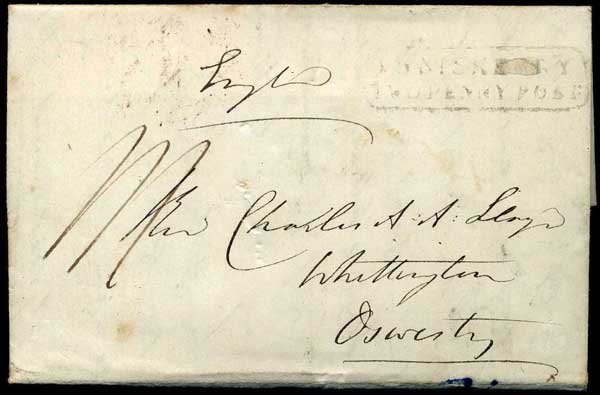 Engld
TWOPENNY POST
Revd Charles A: A: Lloyd
Whittington
Oswestry